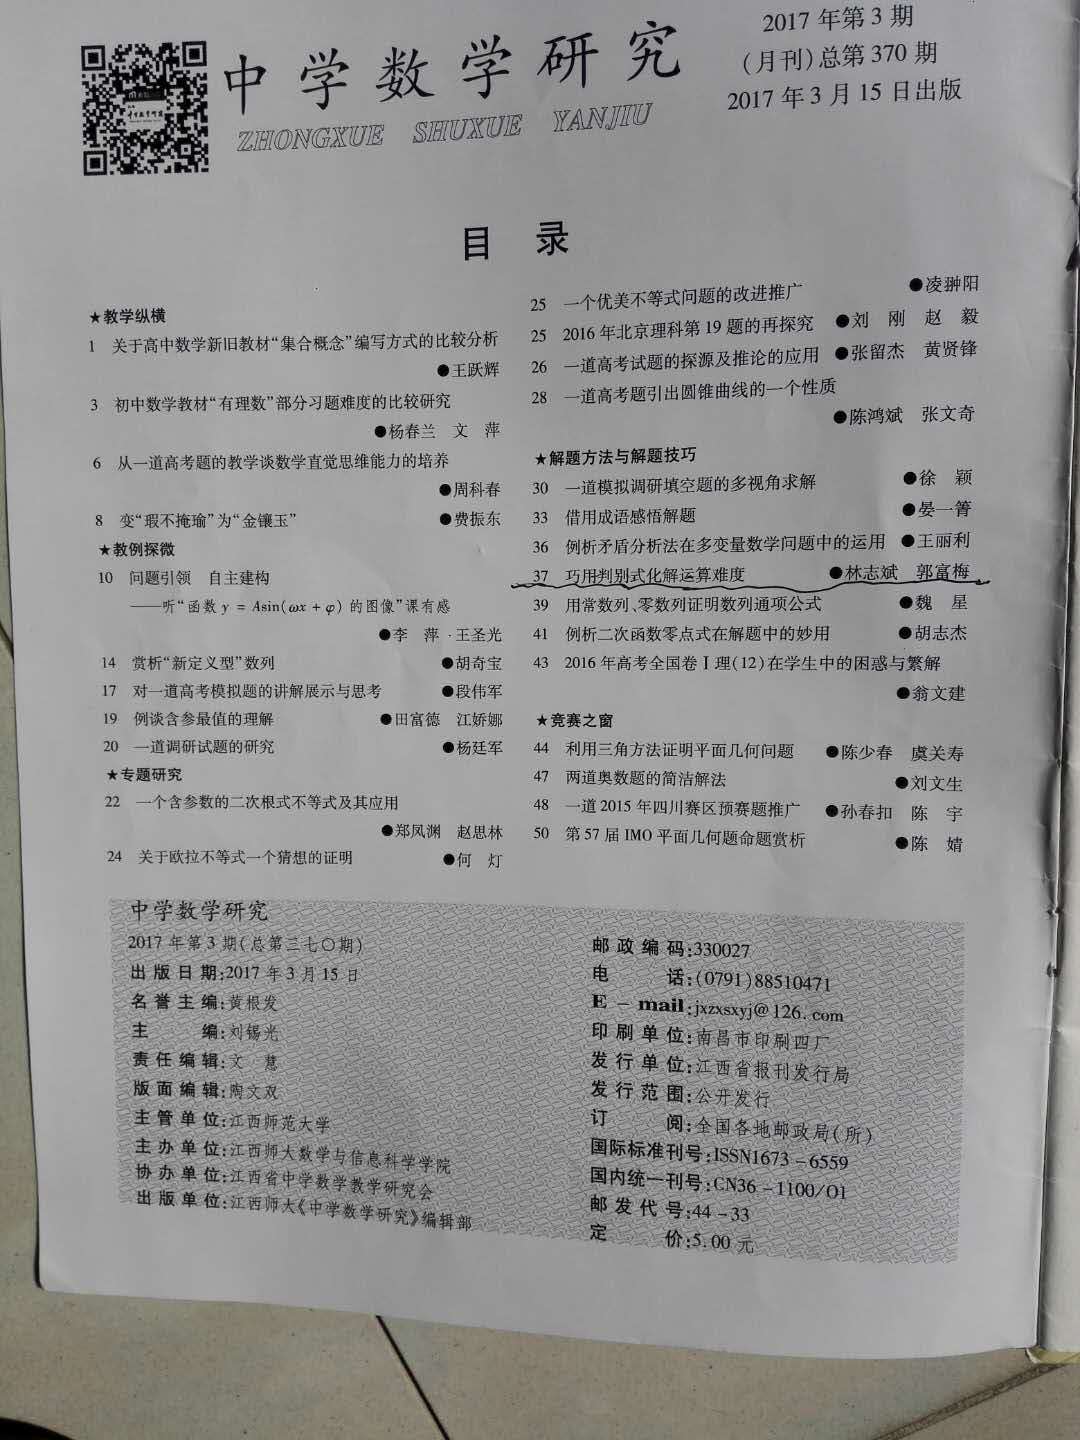 中学数学研究
ZHONGXUE SHUXUE YANJIU
2017年第3期
(月刊)总第370期
2017年3月15日出版
目 录
★教学纵横
1 关于高中数学新旧教材“集合概念”编写方式的比较分析
●王跃辉
3 初中数学教材“有理数”部分习题难度的比较研究
●杨春兰 文 萍
6 从一道高考题的教学谈数学直觉思维能力的培养
●周科春
8 变“瑕不掩瑜”为“金镶玉” ●费振东
★教例探微
10 问题引领 自主建构
——听“函数 y = Asin(ωx + φ) 的图像”课有感
●李 萍·王圣光
14 赏析“新定义型”数列 ●胡奇宝
17 对一道高考模拟题的讲解展示与思考 ●段伟军
19 例谈含参最值的理解 ●田富德 江娇娜
20 一道调研试题的研究 ●杨廷军
★专题研究
22 一个含参数的二次根式不等式及其应用
●郑凤渊 赵思林
24 关于欧拉不等式一个猜想的证明 ●何 灯
25 一个优美不等式问题的改进推广 ●凌翀阳
25 2016年北京理科第19题的再探究 ●刘 刚 赵 毅
26 一道高考试题的探源及推论的应用 ●张留杰 黄贤锋
28 一道高考题引出圆锥曲线的一个性质
●陈鸿斌 张文奇
★解题方法与解题技巧
30 一道模拟调研填空题的多视角求解 ●徐 颖
33 借用成语感悟解题 ●晏一箐
36 例析矛盾分析法在多变量数学问题中的运用 ●王丽利
37 巧用判别式化解运算难度 ●林志斌 郭富梅
39 用常数列、零数列证明数列通项公式 ●魏 星
41 例析二次函数零点式在解题中的妙用 ●胡志杰
43 2016年高考全国卷Ⅰ理(12)在学生中的困惑与繁解
●翁文建
★竞赛之窗
44 利用三角方法证明平面几何问题 ●陈少春 虞关寿
47 两道奥数题的简洁解法 ●刘文生
48 一道2015年四川赛区预赛题推广 ●孙春扣 陈 宇
50 第57届IMO平面几何题命题赏析 ●陈 婧
中学数学研究
2017年第3期(总第三七〇期)
出版日期:2017年3月15日
名誉主编:黄根发
主 编:刘锡光
责任编辑:文 慧
版面编辑:陶文双
主管单位:江西师范大学
主办单位:江西师大数学与信息科学学院
协办单位:江西省中学数学教学研究会
出版单位:江西师大《中学数学研究》编辑部
邮政编码:330027
电 话:(0791)88510471
E-mail:jxzxsxyj@126.com
印刷单位:南昌市印刷四厂
发行单位:江西省报刊发行局
发行范围:公开发行
订 阅:全国各地邮政局(所)
国际标准刊号:ISSN1673-6559
国内统一刊号:CN36-1100/O1
邮发代号:44-33
定 价:5.00元